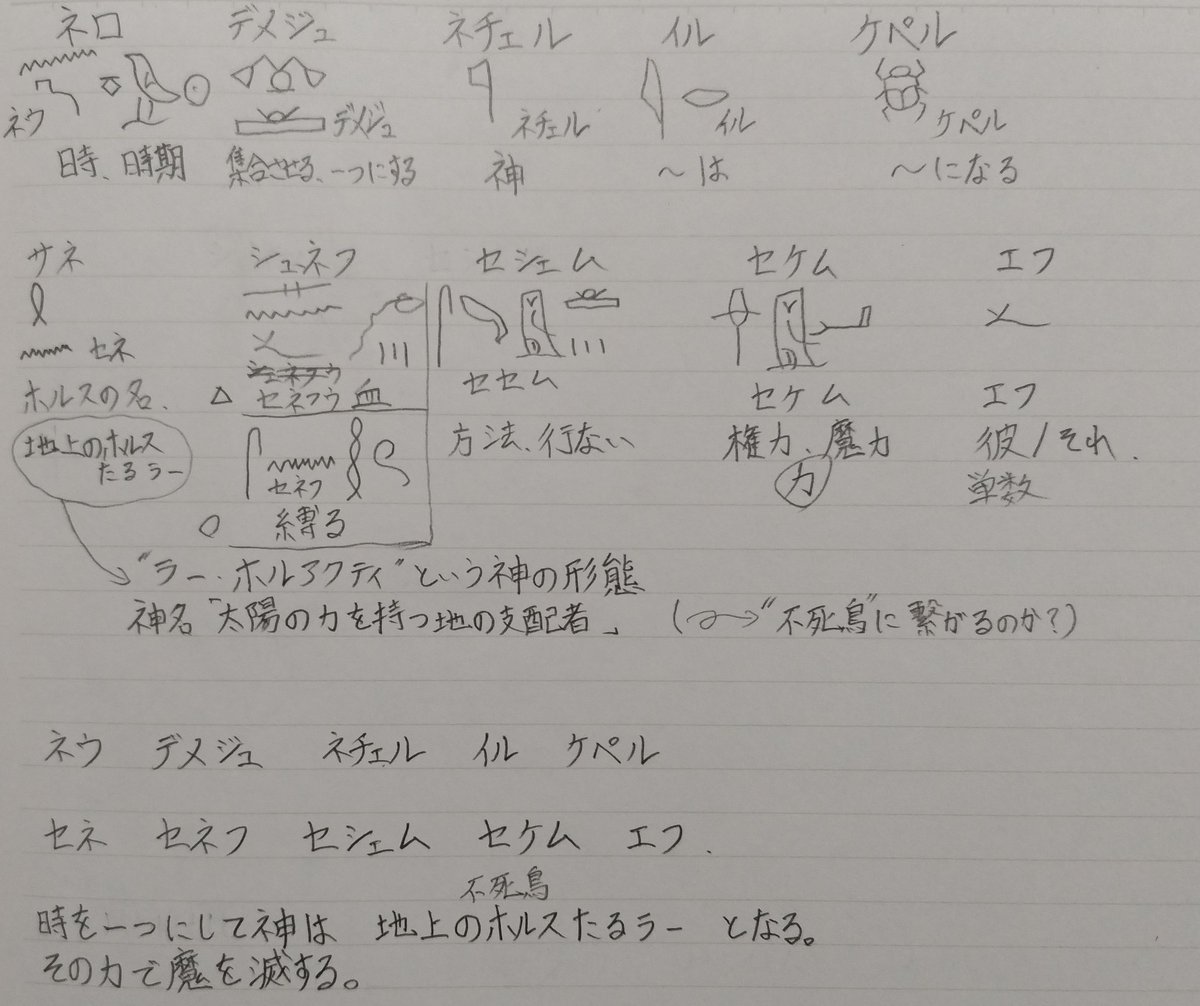 ネロ デメジュ ネチェル イル ケペル
ネウ デメジュ ネチェル イル ケペル
日時、時期 集合させる、一つにする 神 〜は 〜になる
サネ シュネフ セシェム セケム エフ
セネ
ホルスの名. △ セネフウ 血 セセム セケム エフ
地上のホルスたるラー
方法、行ない 権力、魔力 彼/それ.
セネフ 力 単数
○ 縛る
"ラー・ホルアクティ"という神の形態
神名「太陽の力を持つ地の支配者」 (→"不死鳥"に繋がるのか?)
ネウ デメジュ ネチェル イル ケペル
セネ セネフ セシェム セケム エフ.
不死鳥
時を一つにして神は 地上のホルスたるラー となる。
その力で魔を滅する。